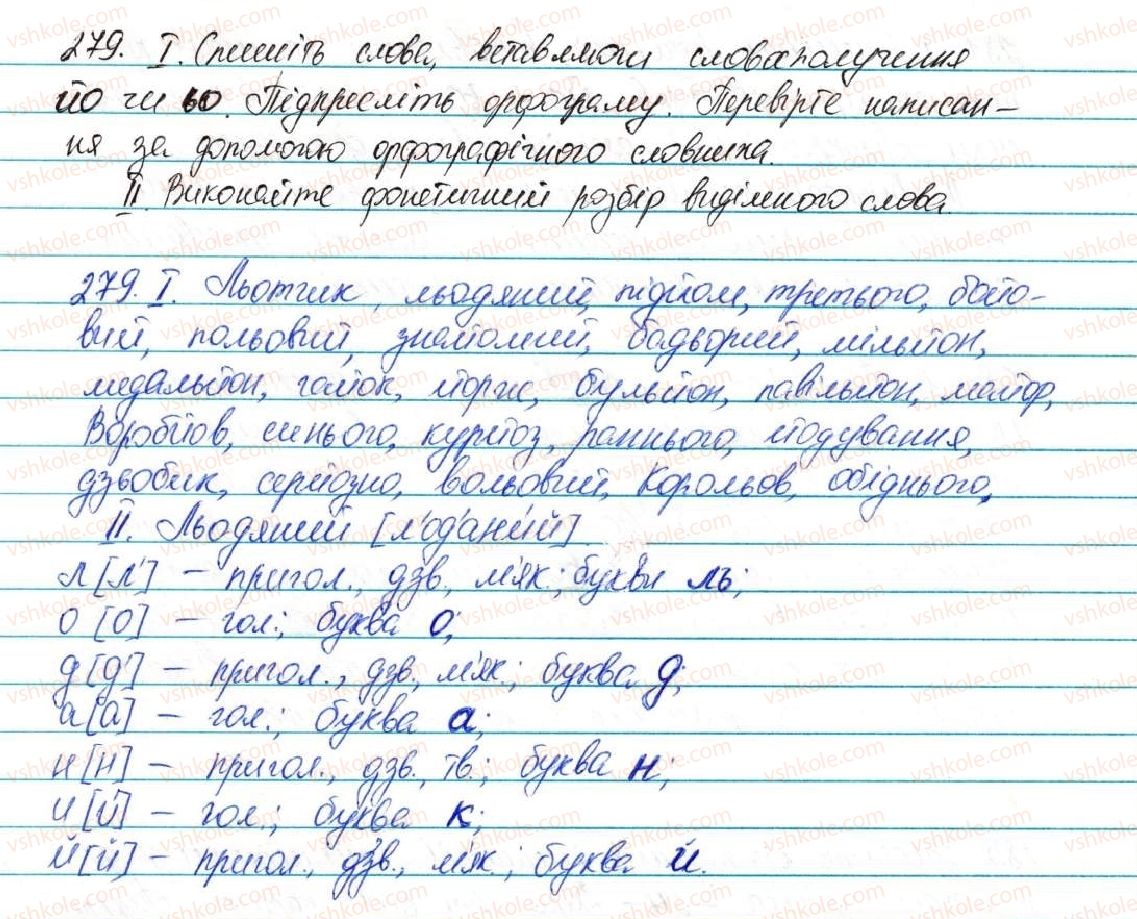 279. І. Спишіть слова, вставляючи словосполучення
йо чи ьо. Підкресліть орфограму. Перевірте написан-
ня за допомогою орфографічного словника.
ІІ. Виконайте фонетичний розбір виділеного слова.
279. І. Льотчик, льодяний, підйом, третього, бойо-
вий, польовий, знайомий, бадьорий, мільйон,
медальйон, гайок, йорж, бульйон, павільйон, майор,
Воробйов, синього, курйоз, раннього, йодування,
дзьобик, серйозно, вольовий, Корольов, обіднього,
ІІ. Льодяний [л'од'ани́й]
л [л'] – пригол., дзв., м'як.; букви ль;
о [о] – гол.; буква о;
д [д'] – пригол., дзв., м'як.; буква д;
а [а] – гол.; буква а;
н [н] – пригол., дзв., тв.; буква н;
и [и́] – гол.; буква к;
й [й] – пригол., дзв., м'як.; буква й.